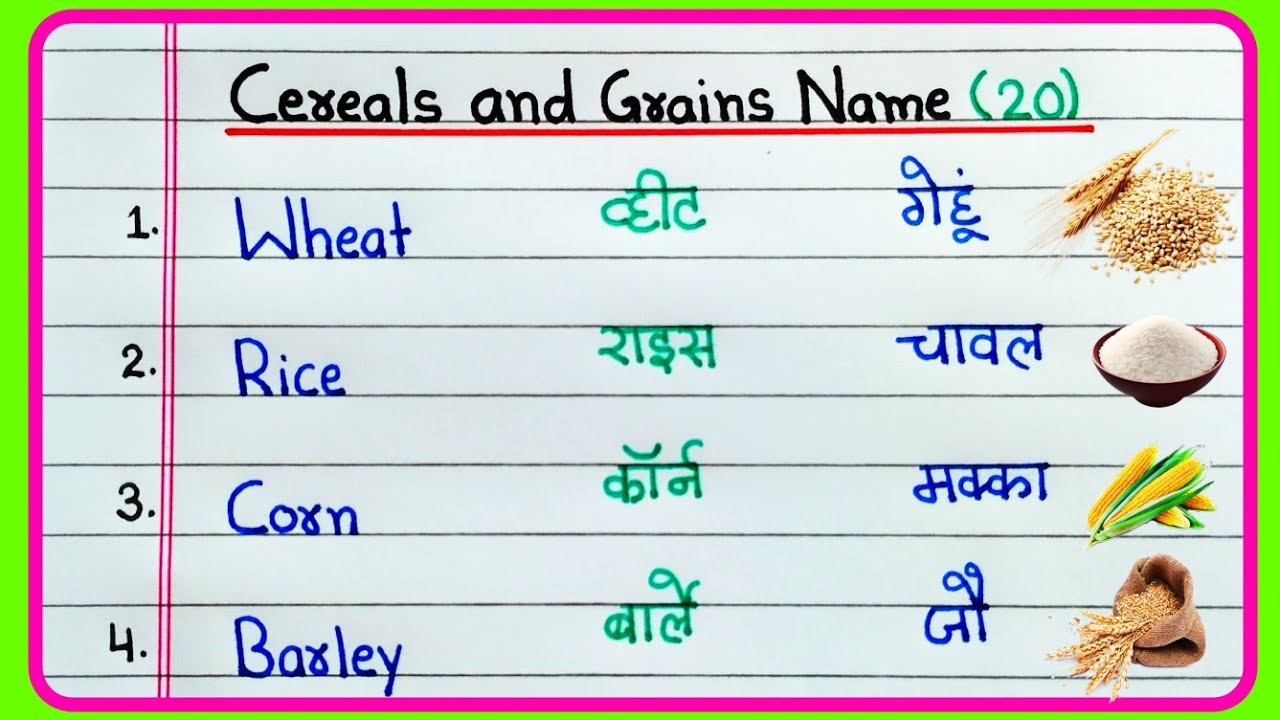 Cereals and Grains Name (20)
1. Wheat व्हीट गेहूं
2. Rice राइस चावल
3. Corn कॉर्न मक्का
4. Barley बार्ले जौ